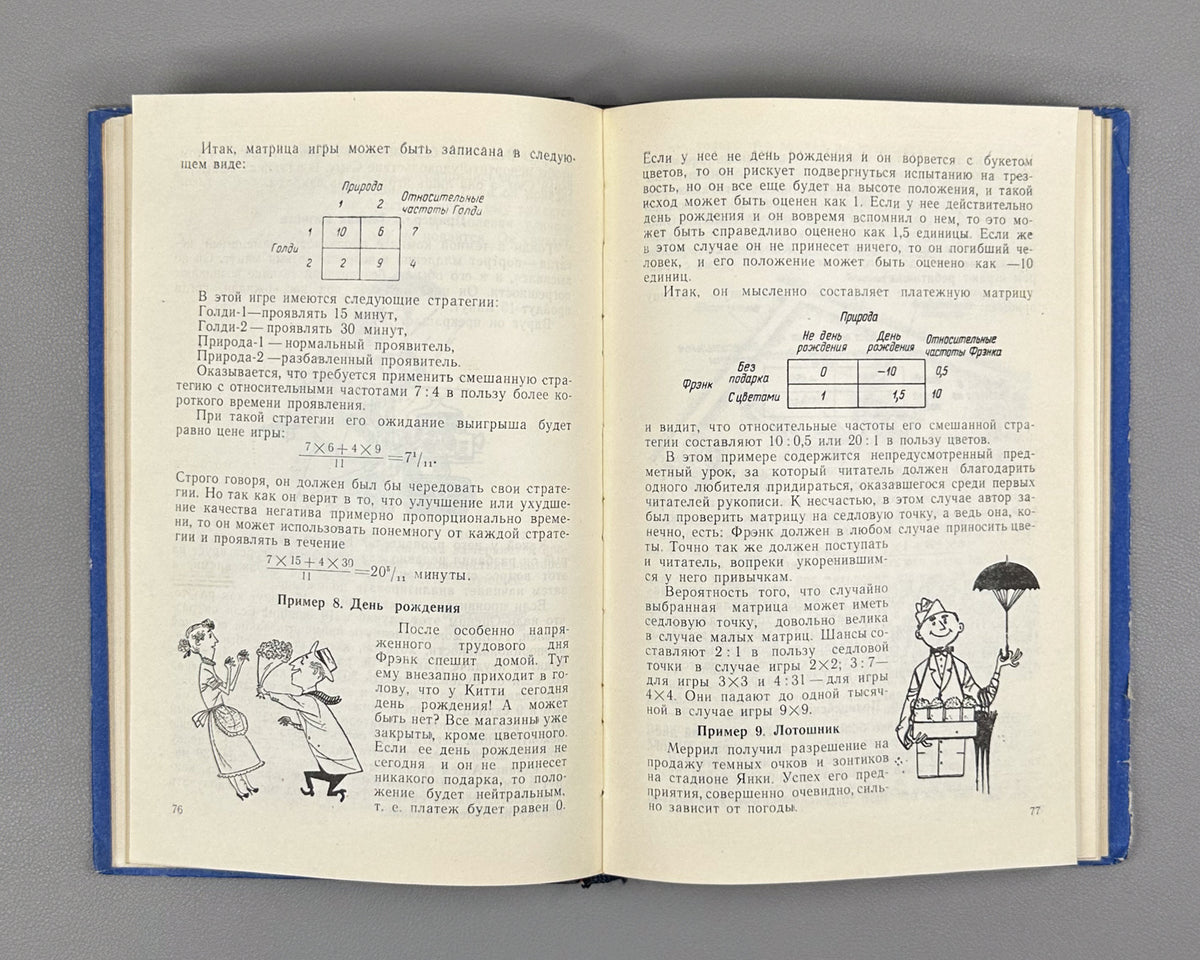 Итак, матрица игры может быть записана в следую-
щем виде:
Природа
1 2 Относительные
частоты Голди
1 10 6 7
Голди
2 2 9 4
В этой игре имеются следующие стратегии:
Голди-1—проявлять 15 минут,
Голди-2—проявлять 30 минут,
Природа-1—нормальный проявитель,
Природа-2—разбавленный проявитель.
Оказывается, что требуется применить смешанную стра-
тегию с относительными частотами 7:4 в пользу более ко-
роткого времени проявления.
При такой стратегии его ожидание выигрыша будет
равно цене игры:
7×6+4×9
11 =7¹/₁₁.
Строго говоря, он должен был бы чередовать свои страте-
гии. Но так как он верит в то, что улучшение или ухудше-
ние качества негатива примерно пропорционально време-
ни, то он может использовать понемногу от каждой страте-
гии и проявлять в течение
7×15+4×30
11 =20⁵/₁₁ минуты.
Пример 8. День рождения
После особенно напря-
женного трудового дня
Фрэнк спешит домой. Тут
ему внезапно приходит в го-
лову, что у Китти сегодня
день рождения! А может
быть нет? Все магазины уже
закрыты, кроме цветочного.
Если ее день рождения не
сегодня и он не принесет
никакого подарка, то поло-
жение будет нейтральным,
т. е. платеж будет равен 0.
76
Если у нее не день рождения и он ворвется с букетом
цветов, то он рискует подвергнуться испытанию на трез-
вость, но он все еще будет на высоте положения, и такой
исход может быть оценен как 1. Если у нее действительно
день рождения и он вовремя вспомнил о нем, то это мо-
жет быть справедливо оценено как 1,5 единицы. Если же
в этом случае он не принесет ничего, то он погибший че-
ловек, и его положение может быть оценено как —10
единиц.
Итак, он мысленно составляет платежную матрицу
Природа
Не день рождения День рождения Относительные частоты Фрэнка
Фрэнк
Без подарка 0 —10 0,5
С цветами 1 1,5 10
и видит, что относительные частоты его смешанной стра-
тегии составляют 10:0,5 или 20:1 в пользу цветов.
В этом примере содержится непредусмотренный пред-
метный урок, за который читатель должен благодарить
одного любителя придираться, оказавшегося среди первых
читателей рукописи. К несчастью, в этом случае автор за-
был проверить матрицу на седловую точку, а ведь она, ко-
нечно, есть: Фрэнк должен в любом случае приносить цве-
ты. Точно так же должен поступать
и читатель, вопреки укоренившим-
ся у него привычкам.
Вероятность того, что случайно
выбранная матрица может иметь
седловую точку, довольно велика
в случае малых матриц. Шансы со-
ставляют 2:1 в пользу седловой
точки в случае игры 2×2; 3:7—
для игры 3×3 и 4:31—для игры
4×4. Они падают до одной тысяч-
ной в случае игры 9×9.
Пример 9. Лотошник
Меррил получил разрешение на
продажу темных очков и зонтиков
на стадионе Янки. Успех его пред-
приятия, совершенно очевидно, силь-
но зависит от погоды.
77